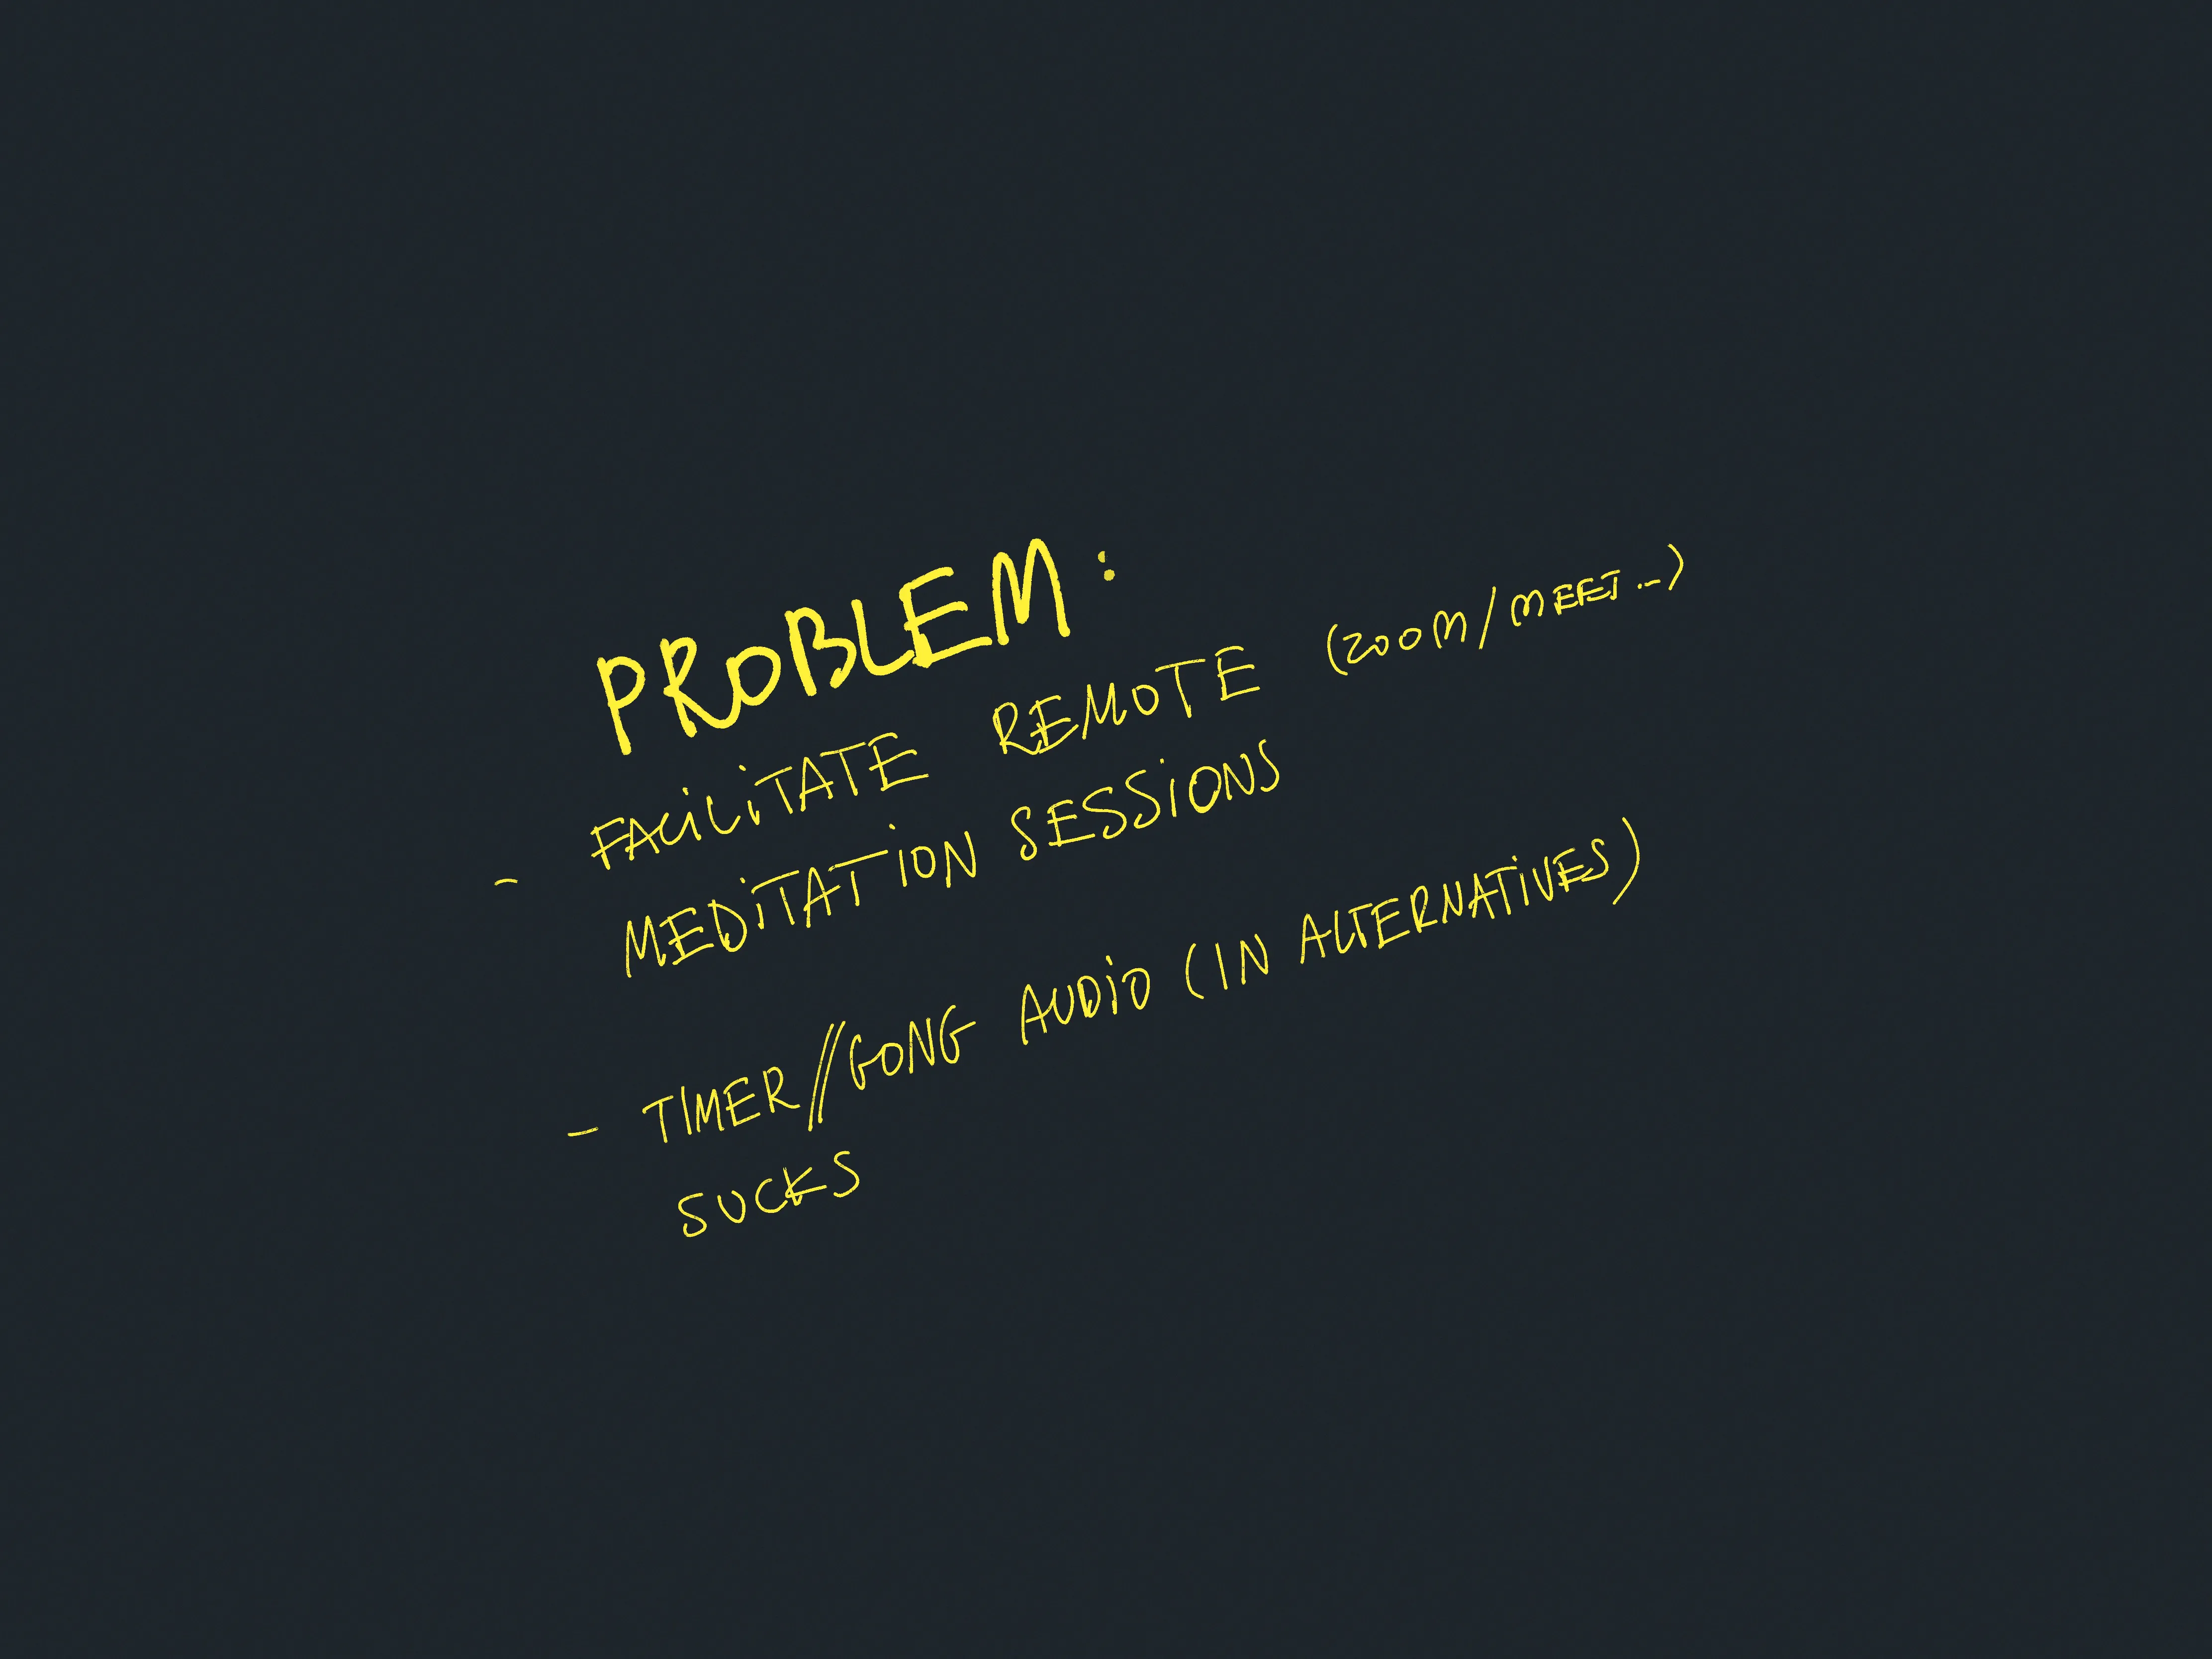 PROBLEM:
- FACILITATE REMOTE (ZOOM/MEET..)
MEDITATION SESSIONS
- TIMER//GONG AUDIO (IN ALTERNATIVES)
SUCKS